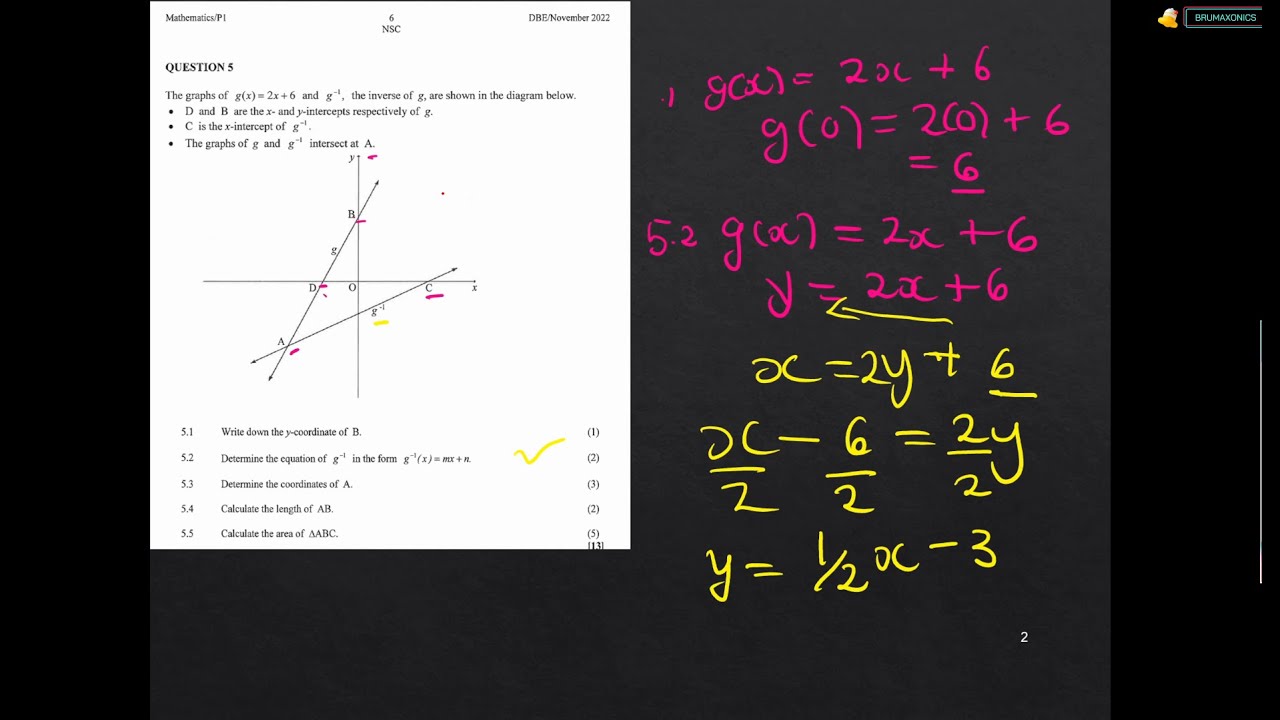 BRUMAXONICS
Mathematics/P1 6 DBE/November 2022
NSC
QUESTION 5
The graphs of g(x) = 2x + 6 and g⁻¹, the inverse of g, are shown in the diagram below.
• D and B are the x- and y-intercepts respectively of g.
• C is the x-intercept of g⁻¹.
• The graphs of g and g⁻¹ intersect at A.
y
B
g
D O C x
g⁻¹
A
5.1 Write down the y-coordinate of B. (1)
5.2 Determine the equation of g⁻¹ in the form g⁻¹(x) = mx + n. (2)
5.3 Determine the coordinates of A. (3)
5.4 Calculate the length of AB. (2)
5.5 Calculate the area of ΔABC. (5)
[13]
.1 g(x) = 2x + 6
g(0) = 2(0) + 6
= 6
5.2 g(x) = 2x + 6
y = 2x + 6
x = 2y + 6
x/2 - 6/2 = 2y/2
y = 1/2 x - 3
2